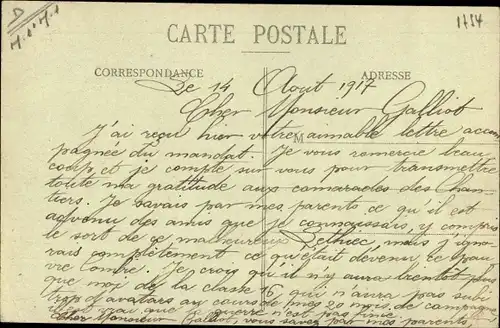 1154
CARTE POSTALE
CORRESPONDANCE
ADRESSE
Le 14 Aout 1917
Cher Monsieur Galliot
M
J'ai reçu hier votre aimable lettre accom
pagnée du mandat. Je vous remercie beau
coup, et je compte sur vous pour transmettre
toute ma gratitude aux camarades des Chan
tiers. Je savais par mes parents ce qu'il est
advenu des amis que je connaissais, y compris
le sort de ce malheureux mais j'igno
rais complètement ce qu'était devenu ce pau
vre Combre. Je crois qu'il n'y aura bientôt plus
que moi de la classe 16 qui n'aura pas subi
trop d'avatars au cours de mes 20 mois de campagne
que la guerre n'est pas finie.
Cher Monsieur Galliot, vous savez par mes parents,